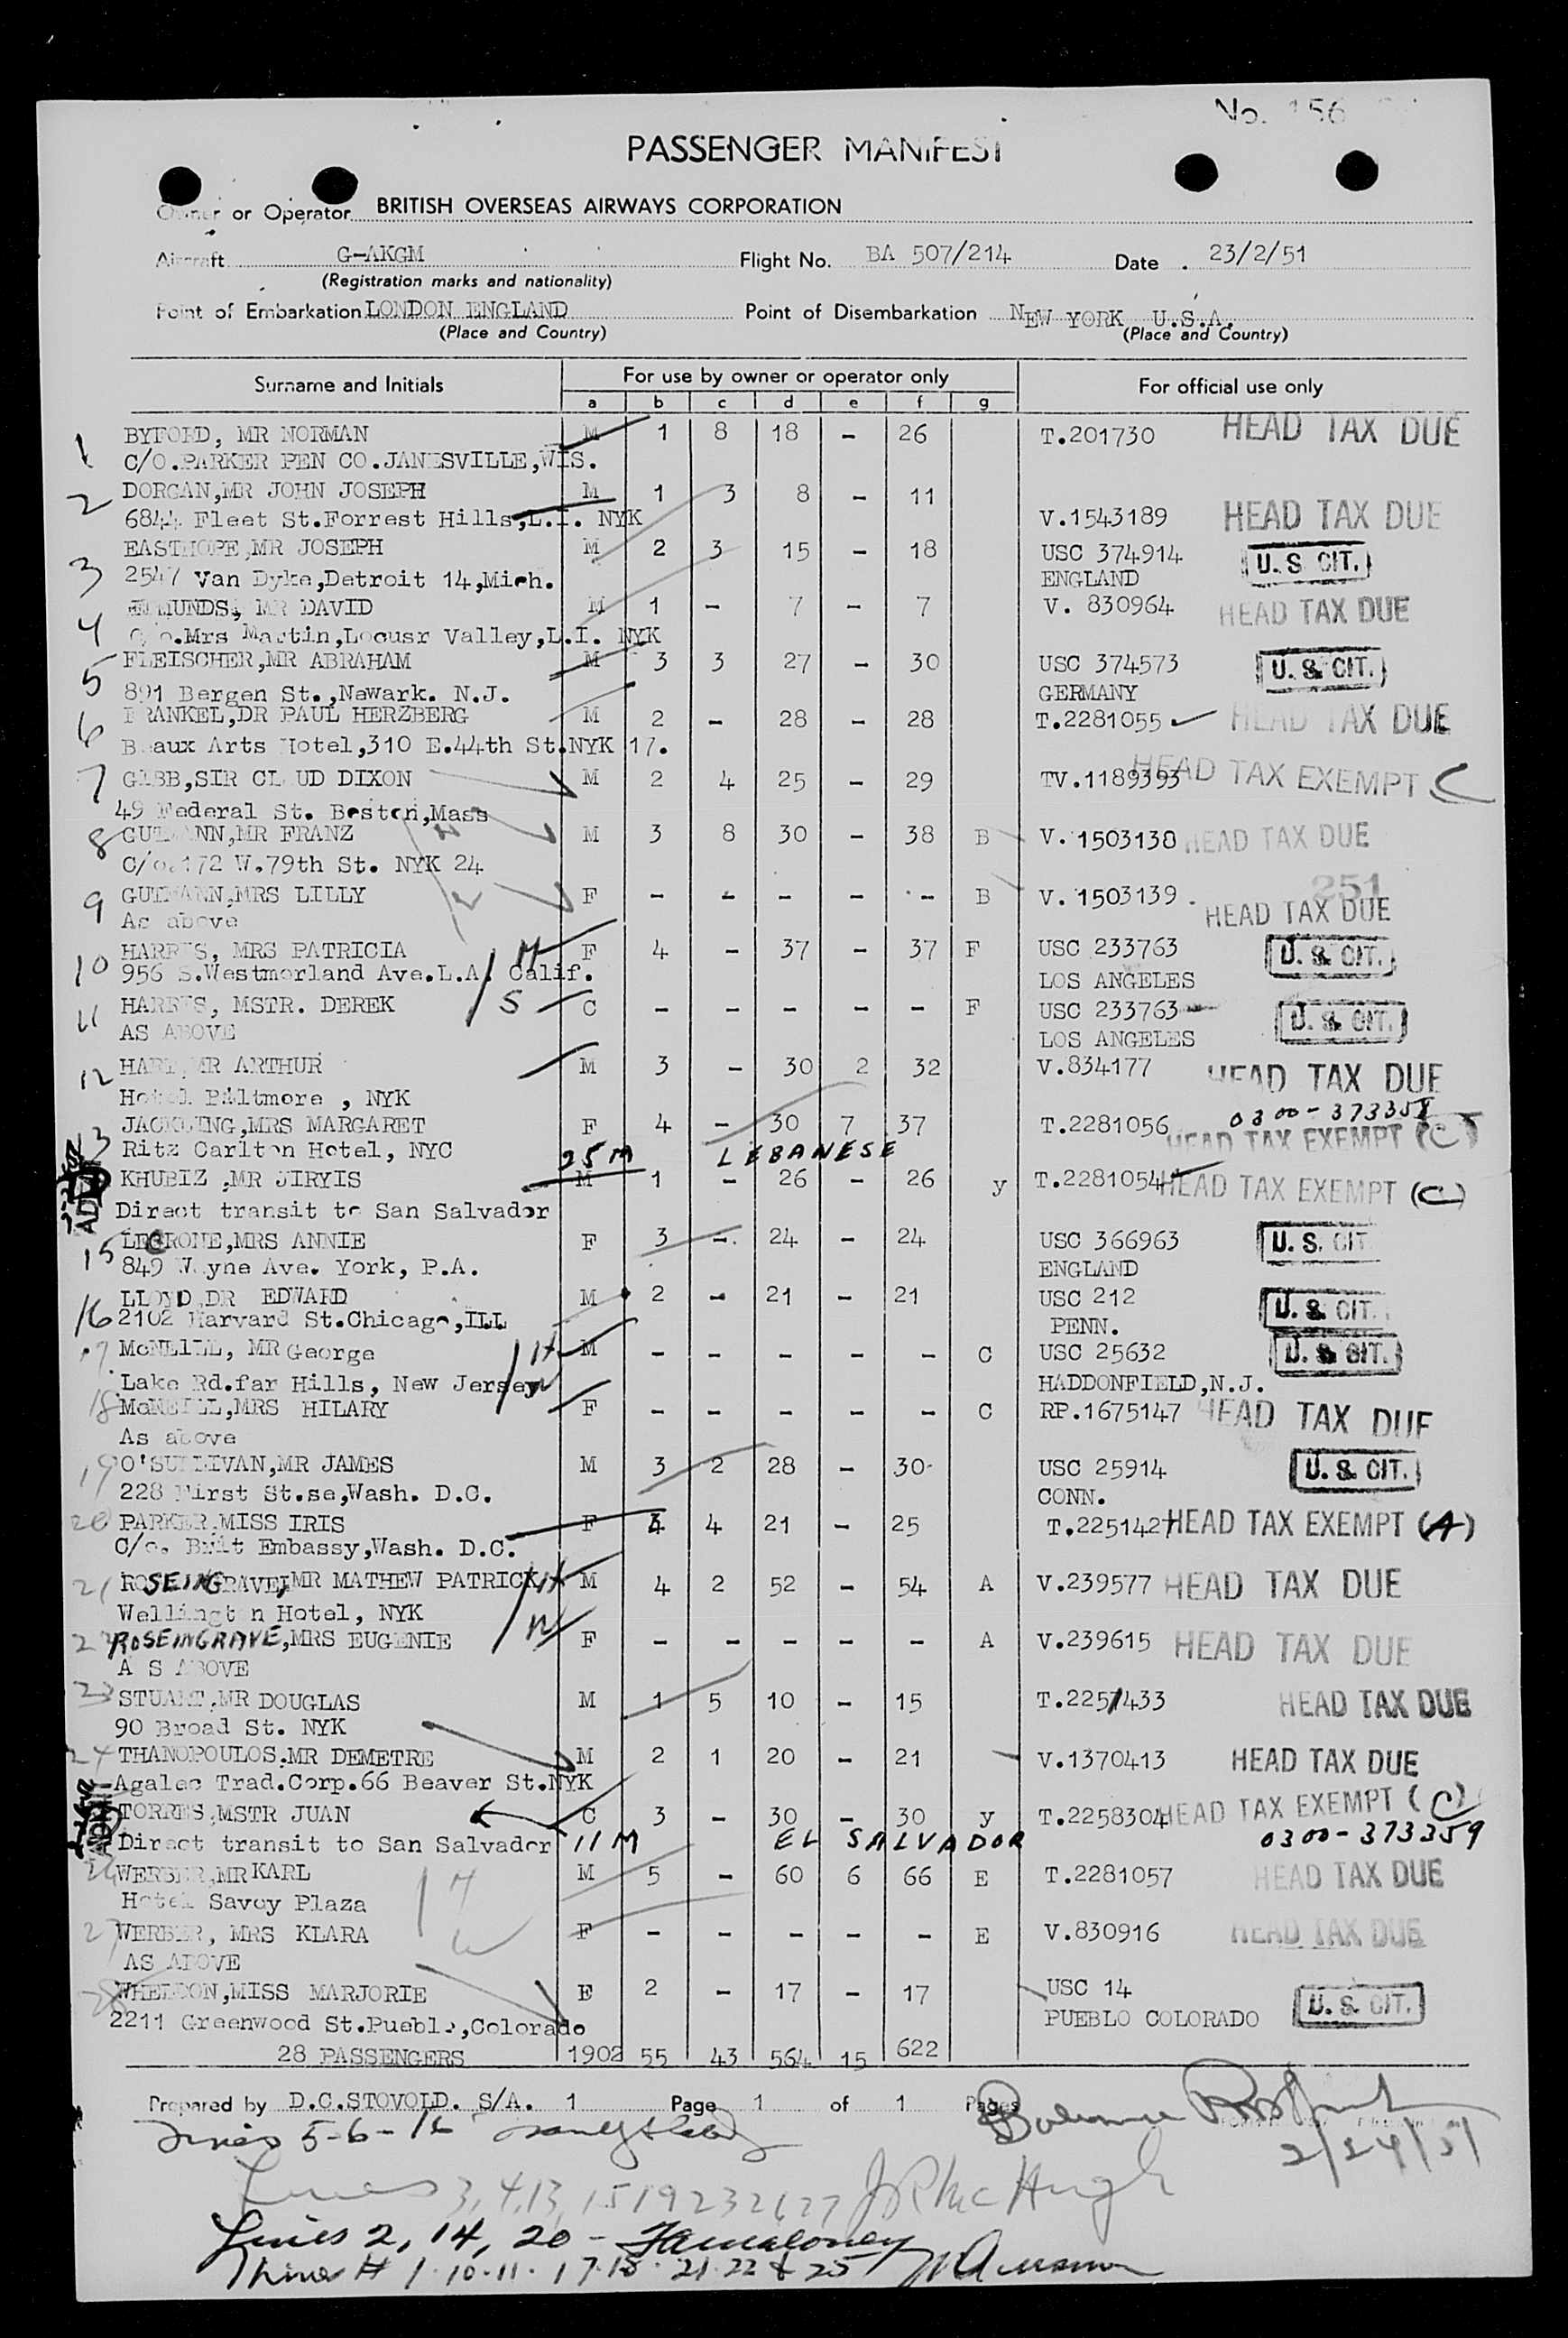 No. 156
PASSENGER MANIFEST
Owner or Operator BRITISH OVERSEAS AIRWAYS CORPORATION
Aircraft G-AKGM Flight No. BA 507/214 Date 23/2/51
(Registration marks and nationality)
Point of Embarkation LONDON ENGLAND Point of Disembarkation NEW YORK U.S.A.
(Place and Country) (Place and Country)
Surname and Initials For use by owner or operator only For official use only
a b c d e f g
1 BYFORD, MR NORMAN M 1 8 18 - 26 T.201730 HEAD TAX DUE
C/O.PARKER PEN CO.JANESVILLE,WIS.
2 DORGAN,MR JOHN JOSEPH M 1 3 8 - 11
6844 Fleet St.Forrest Hills,L.I. NYK V.1543189 HEAD TAX DUE
3 EASTHOPE,MR JOSEPH M 2 3 15 - 18 USC 374914 U.S CIT.
2547 Van Dyke,Detroit 14,Mich. ENGLAND
4 EDMUNDS, MR DAVID M 1 - 7 - 7 V. 830964 HEAD TAX DUE
C/o.Mrs Martin,Locusr Valley,L.I. NYK
5 FLEISCHER,MR ABRAHAM M 3 3 27 - 30 USC 374573 U.S. CIT.
891 Bergen St.,Newark. N.J. GERMANY
6 FRANKEL,DR PAUL HERZBERG M 2 - 28 - 28 T.2281055 HEAD TAX DUE
Beaux Arts Hotel,310 E.44th St.NYK 17.
7 GABB,SIR CLAUD DIXON M 2 4 25 - 29 TV.1189393 HEAD TAX EXEMPT C
49 Federal St. Boston,Mass
8 GUTMANN,MR FRANZ M 3 8 30 - 38 B V. 1503138 HEAD TAX DUE
C/o.172 W.79th St. NYK 24
9 GUTMANN,MRS LILLY F - - - - - B V. 1503139 . 251 HEAD TAX DUE
As above
10 HARRIS, MRS PATRICIA F 4 - 37 - 37 F USC 233763 U.S. CIT.
956 S.Westmorland Ave.L.A. Calif. LOS ANGELES
11 HARRIS, MSTR. DEREK S C - - - - - F USC 233763 U.S. CIT.
AS ABOVE LOS ANGELES
12 MR ARTHUR M 3 - 30 2 32 V.834177 HEAD TAX DUE
Hotel Biltmore , NYK 0300-373358
13 JACKLING,MRS MARGARET F 4 - 30 7 37 T.2281056 HEAD TAX EXEMPT (C)
Ritz Carlton Hotel, NYC 25M LEBANESE
ADMIT KHUBIZ ,MR JIRYIS M 1 - 26 - 26 y T.2281054 HEAD TAX EXEMPT (C)
Direct transit to San Salvador
15 LEGRONE,MRS ANNIE F 3 - 24 - 24 USC 366963 U.S. CIT
849 Wayne Ave. York, P.A. ENGLAND
16 LLOYD,DR EDWARD M 2 - 21 - 21 USC 212 U.S. CIT.
2102 Harvard St.Chicago,ILL PENN.
17 McNEILL, MR George H M - - - - - C USC 25632 U.S. CIT.
Lake Rd.far Hills, New Jersey W HADDONFIELD,N.J.
18 McNEILL,MRS HILARY F - - - - - C RP.1675147 HEAD TAX DUE
As above
19 O'SULLIVAN,MR JAMES M 3 2 28 - 30 USC 25914 U.S. CIT.
228 First St.se,Wash. D.C. CONN.
20 PARKER,MISS IRIS F 4 4 21 - 25 T.2251427 HEAD TAX EXEMPT (A)
C/o. Brit Embassy,Wash. D.C.
21 ROSEINGRAVE,MR MATHEW PATRICK H M 4 2 52 - 54 A V.239577 HEAD TAX DUE
Wellington Hotel, NYK
22 ROSEINGRAVE,MRS EUGENIE W F - - - - - A V.239615 HEAD TAX DUE
A S ABOVE
23 STUART,MR DOUGLAS M 1 5 10 - 15 T.2251433 HEAD TAX DUE
90 Broad St. NYK
24 THANOPOULOS.MR DEMETRE M 2 1 20 - 21 V.1370413 HEAD TAX DUE
Agalec Trad.Corp.66 Beaver St.NYK
ADMIT TORRES,MSTR JUAN C 3 - 30 - 30 y T.2258304 HEAD TAX EXEMPT (C)
Direct transit to San Salvador 11M EL SALVADOR 0300-373359
26 WERBER,MR KARL H M 5 - 60 6 66 E T.2281057 HEAD TAX DUE
Hotel Savoy Plaza
27 WERBER, MRS KLARA W F - - - - - E V.830916 HEAD TAX DUE
AS ABOVE
28 WHELDON,MISS MARJORIE F 2 - 17 - 17 USC 14 U.S. CIT.
2211 Greenwood St.Pueblo,Colorado PUEBLO COLORADO
28 PASSENGERS 1902 55 43 564 15 622
Prepared by D.C.STOVOLD. S/A. 1 Page 1 of 1 Pages
Lines 5-6-16 Balance
2/24/51
Lines 3,4,13,15 19 23 26 27 J R McHugh
Lines 2, 14, 20 -
Lines # 1-10-11-17-18-21-22 & 25